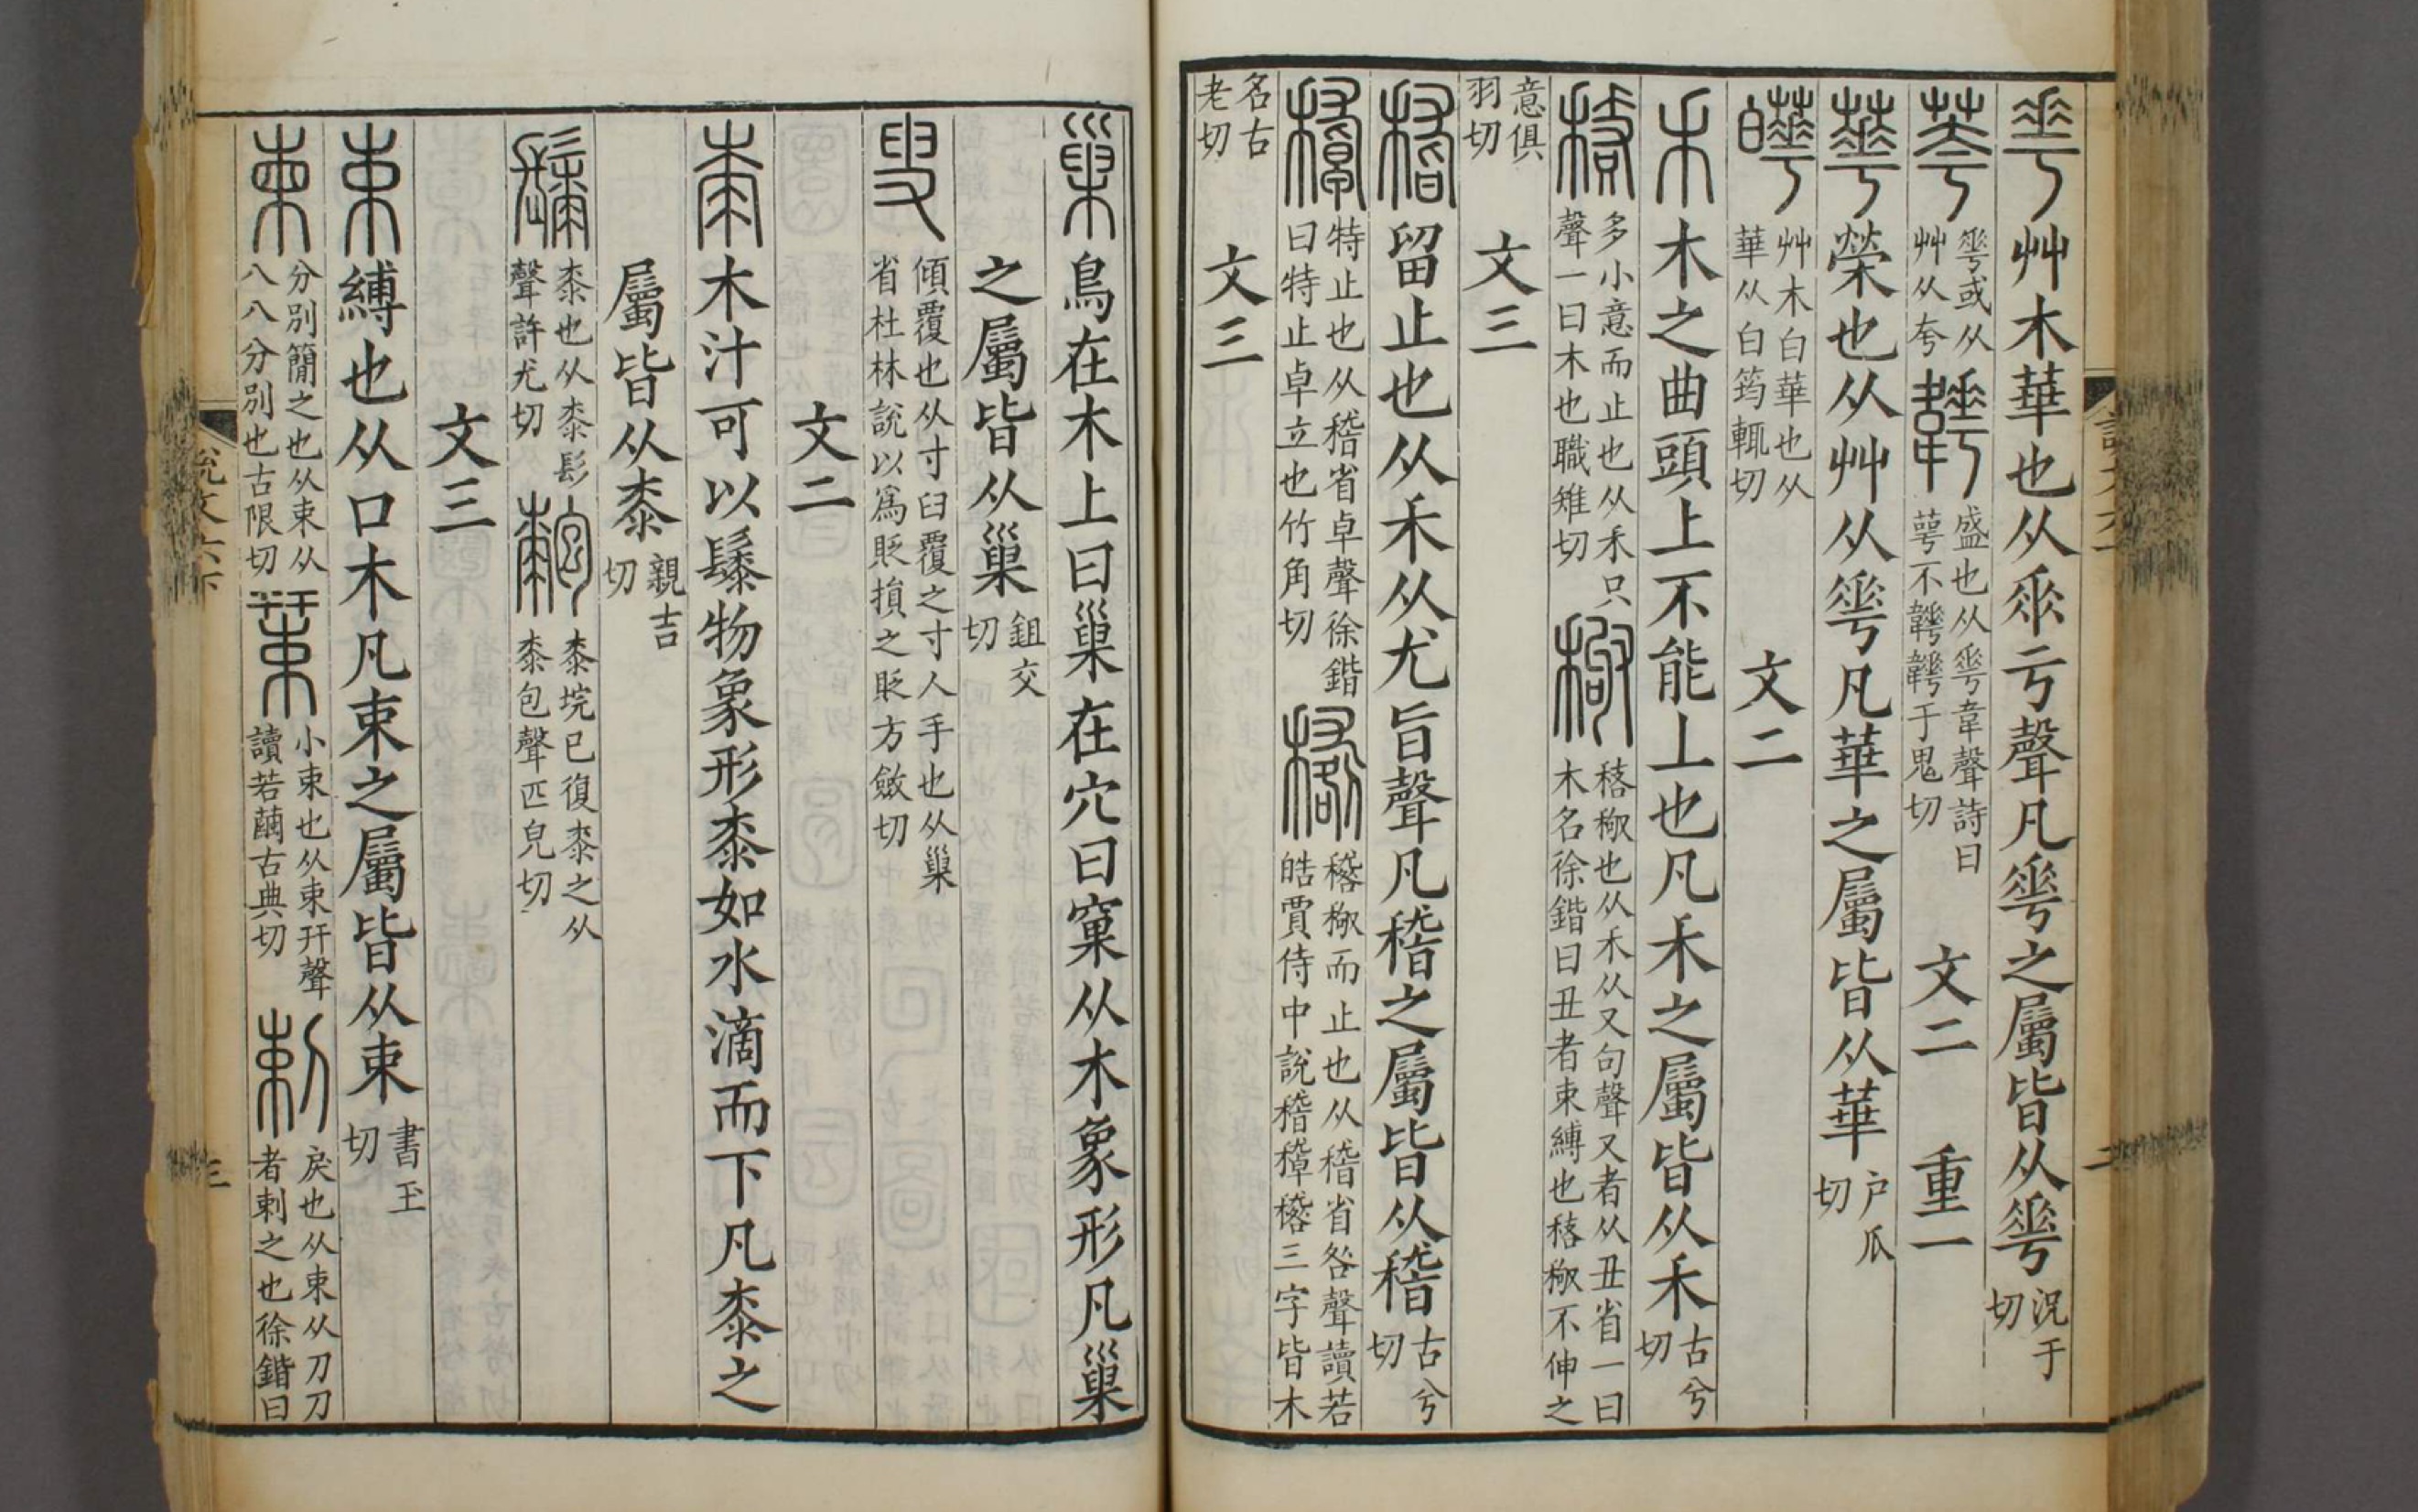 𠌶艸木華也从𠂹亏聲凡𠌶之屬皆从𠌶況于切
荂𠌶或从艸从夸𩏠盛也从𠌶韋聲詩曰萼不𩏠𩏠于鬼切 文二 重一
華榮也从艸从𠌶凡華之屬皆从華戶瓜切
皣艸木白華也从華从白筠輒切 文二
𥝌木之曲頭上不能上也凡𥝌之屬皆从𥝌古兮切
𥠻多小意而止也从𥝌只聲一曰木也職雉切𥡩𥠻𥡩也从𥝌从又句聲又者从丑省一曰木名徐鍇曰丑者束縛也𥠻𥡩不伸之
意俱羽切 文三
稽留止也从𥝌从尤旨聲凡稽之屬皆从稽古兮切
𥡜特止也从稽省卓聲徐鍇曰特止卓立也竹角切𥢔𥢔𥡩而止也从稽省咎聲讀若皓賈侍中說稽𥡜𥢔三字皆木
名古老切 文三
巢鳥在木上曰巢在穴曰窠从木象形凡巢
之屬皆从巢鉏交切
𠭥傾覆也从寸臼覆之寸人手也从巢省杜林說以為貶損之貶方斂切
文二
桼木汁可以䰍物象形桼如水滴而下凡桼之
屬皆从桼親吉切
䰍桼也从桼髟聲許尤切𣠉桼垸已復桼之从桼包聲匹皃切
文三
束縛也从口木凡束之屬皆从束書玉切
柬分別簡之也从束从八八分別也古限切𣗥小束也从束幵聲讀若繭古典切剌戾也从束从刀刀者剌之也徐鍇曰
說文六下
三
二